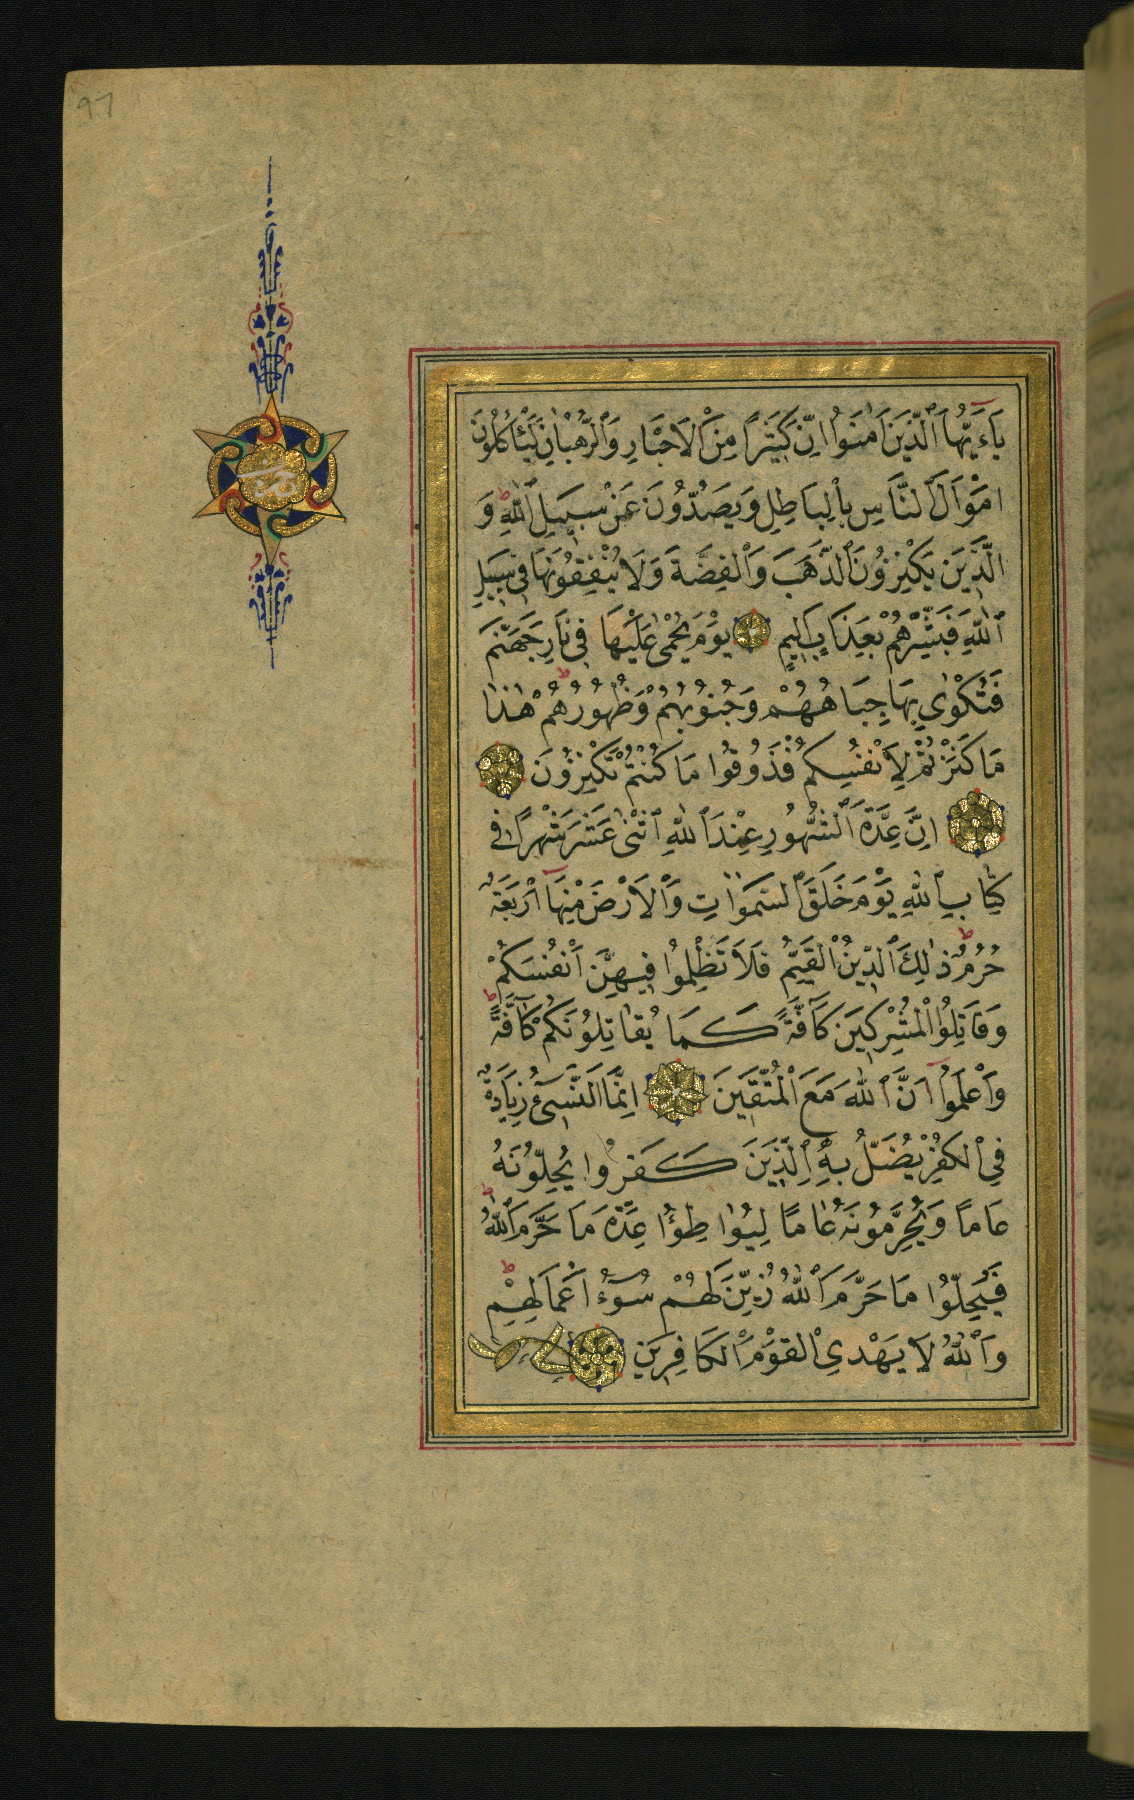 يَاءَيُّهَا الَّذِينَ اٰمَنُوا اِنَّ كَثِيرًا مِنَ الْاَحْبَارِ وَالرُّهْبَانِ لَيَأْكُلُونَ
اَمْوَالَ النَّاسِ بِالْبَاطِلِ وَيَصُدُّونَ عَنْ سَبِيلِ اللّٰهِ ط وَ
الَّذِينَ يَكْنِزُونَ الذَّهَبَ وَالْفِضَّةَ وَلَا يُنْفِقُونَهَا فِي سَبِيلِ
اللّٰهِ فَبَشِّرْهُمْ بِعَذَابٍ اَلِيمٍ يَوْمَ يُحْمٰى عَلَيْهَا فِي نَارِ جَهَنَّمَ
فَتُكْوٰى بِهَا جِبَاهُهُمْ وَجُنُوبُهُمْ وَظُهُورُهُمْ ط هٰذَا
مَا كَنَزْتُمْ لِاَنْفُسِكُمْ فَذُوقُوا مَا كُنْتُمْ تَكْنِزُونَ
اِنَّ عِدَّةَ الشُّهُورِ عِنْدَ اللّٰهِ اثْنٰى عَشَرَ شَهْرًا فِي
كِتَابِ اللّٰهِ يَوْمَ خَلَقَ السَّمٰوَاتِ وَالْاَرْضَ مِنْهَا اَرْبَعَةٌ
حُرُمٌ ط ذٰلِكَ الدِّينُ الْقَيِّمُ فَلَا تَظْلِمُوا فِيهِنَّ اَنْفُسَكُمْ
وَقَاتِلُوا الْمُشْرِكِينَ كَآفَّةً كَمَا يُقَاتِلُونَكُمْ كَآفَّةً ط
وَاعْلَمُوا اَنَّ اللّٰهَ مَعَ الْمُتَّقِينَ اِنَّمَا النَّسِيٓءُ زِيَادَةٌ
فِي الْكُفْرِ يُضَلُّ بِهِ الَّذِينَ كَفَرُوا يُحِلُّونَهُ
عَامًا وَيُحَرِّمُونَهُ عَامًا لِيُوَاطِؤُا عِدَّةَ مَا حَرَّمَ اللّٰهُ ط
فَيُحِلُّوا مَا حَرَّمَ اللّٰهُ زُيِّنَ لَهُمْ سُوٓءُ اَعْمَالِهِمْ ط
وَاللّٰهُ لَا يَهْدِي الْقَوْمَ الْكَافِرِينَ